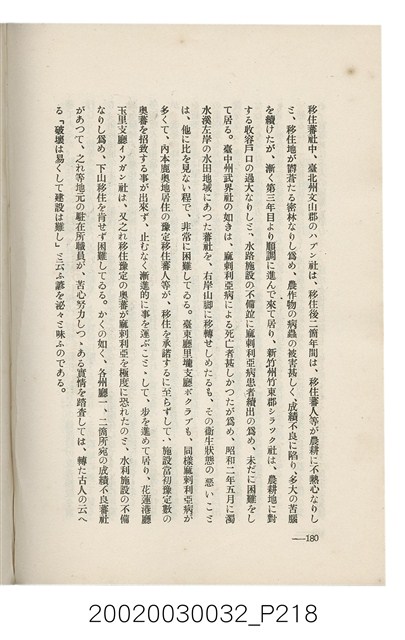 移住蕃社中、臺北州文山郡のハブン社は、移住後二箇年間は、移住蕃人等が農耕に不熱心なりし
と、移住地が欝蒼たる密林なりし爲め、農作物の病蟲の被害甚しく、成績不良に陷り、多大の苦腦
を續けたが、漸く第三年目より順調に進んで來て居り、新竹州竹東郡シラック社は、農耕地に對
する收容戸口の過大なりしと、水路施設の不備竝に麻刺利亞病患者續出の爲め、未だに困難をし
て居る。臺中州武界社の如きは、麻刺利亞病による死亡者甚しかつたが爲め、昭和二年五月に濁
水溪左岸の水田地域にあつた蕃社を、右岸山脚に移轉せしめたるも、その衞生狀態の惡いこと
は、他に比を見ない程で、非常に困難してゐる。臺東廳里壠支廳ボクラブも、同樣麻刺利亞病が
多くて、內本鹿奥地居住の豫定移住蕃人等が、移住を承諾するに至らずして、施設當初豫定數の
奥蕃を招致する事が出來ず、止むなく漸進的に事を運ぶことゝして、步を進めて居り、花蓮港廳
玉里支廳イソガン社は、又之れ移住豫定の奥蕃が麻刺利亞を極度に恐れたのと、水利施設の不備
なりし爲め、下山移住を肯せず困難してゐる。かくの如く、各州廳一、二箇所宛の成績不良蕃社
があつて、之れ等地元の駐在所職員が、苦心努力しつゝある實情を踏査しては、轉た古人の云へ
る「破壞は易くして建設は難し」と云ふ諺を泌々と味ふのである。
—180
20020030032_P218